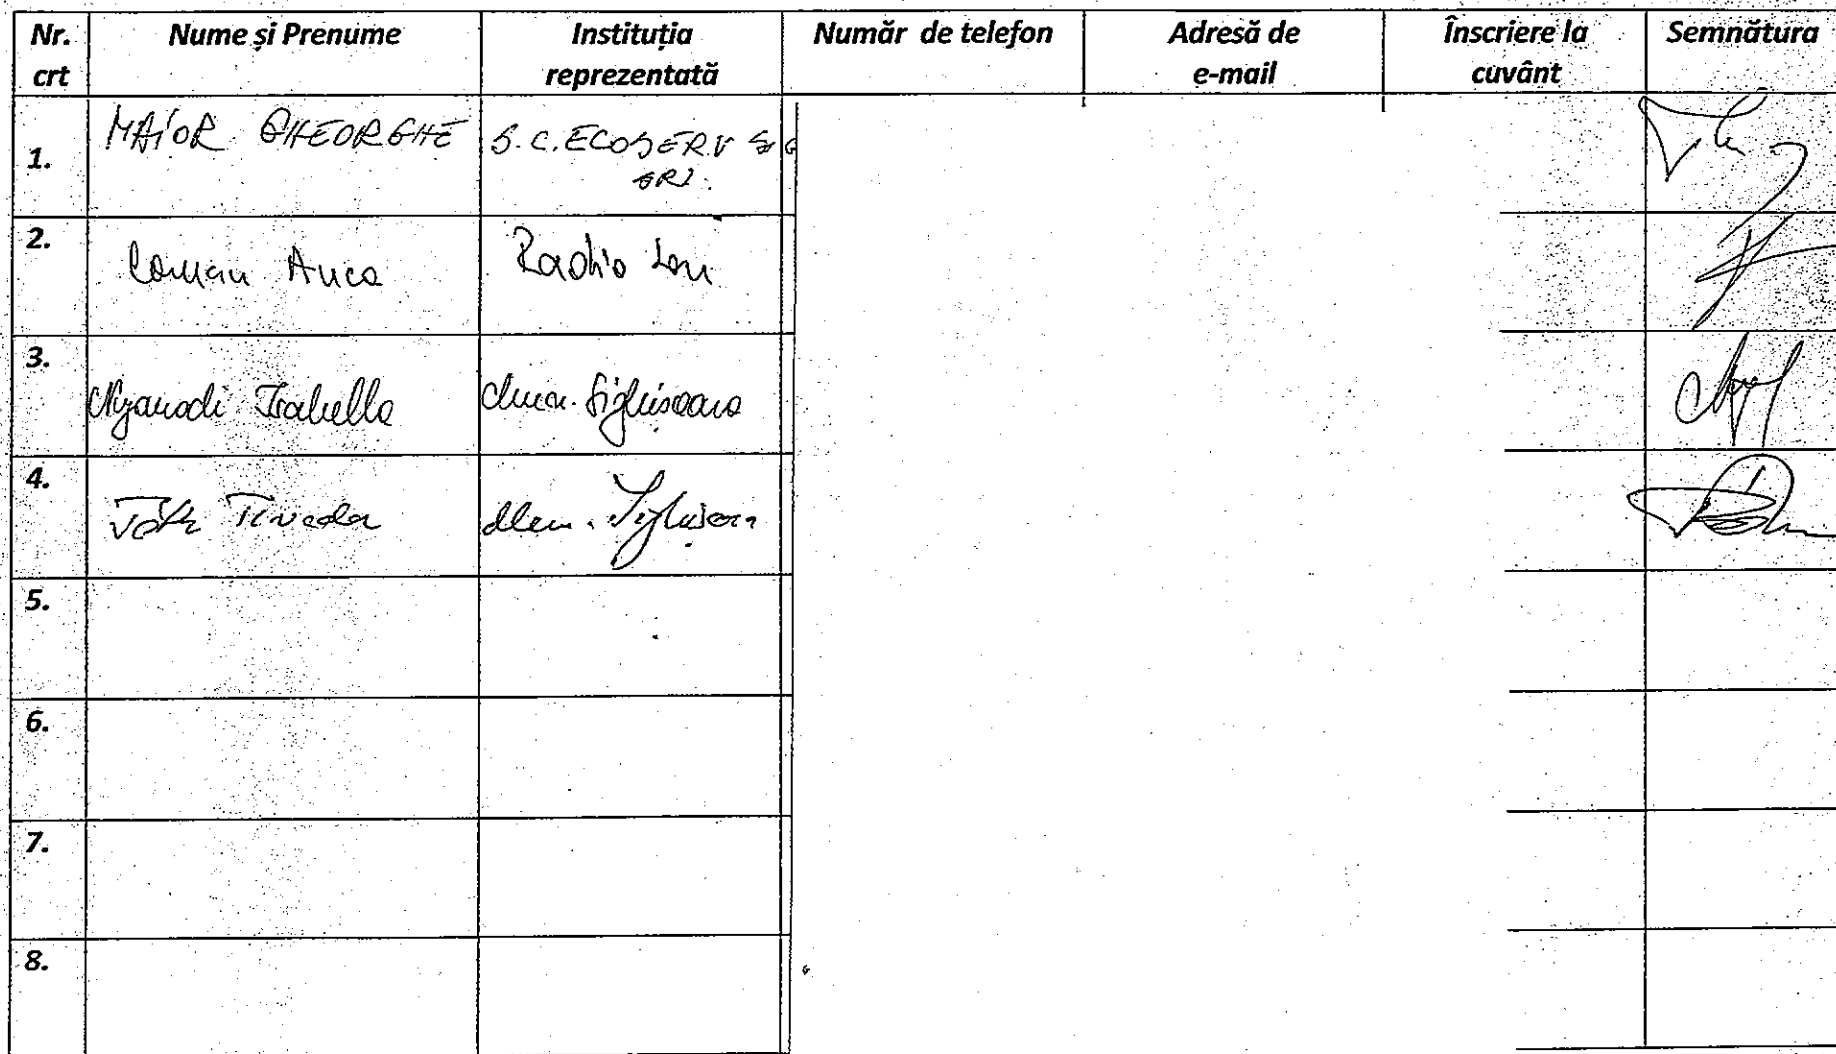 Nr. crt Nume și Prenume Instituția reprezentată Număr de telefon Adresă de e-mail Înscriere la cuvânt Semnătura
1. MAIOR GHEORGHE S.C. ECOSERV
SRL.
2. Coman Anca Radio Son
3. Nyaradi Isabella Mun. Sighisoara
4. Tóth Tivadar Mun. Sighisoara
5.
6.
7.
8.